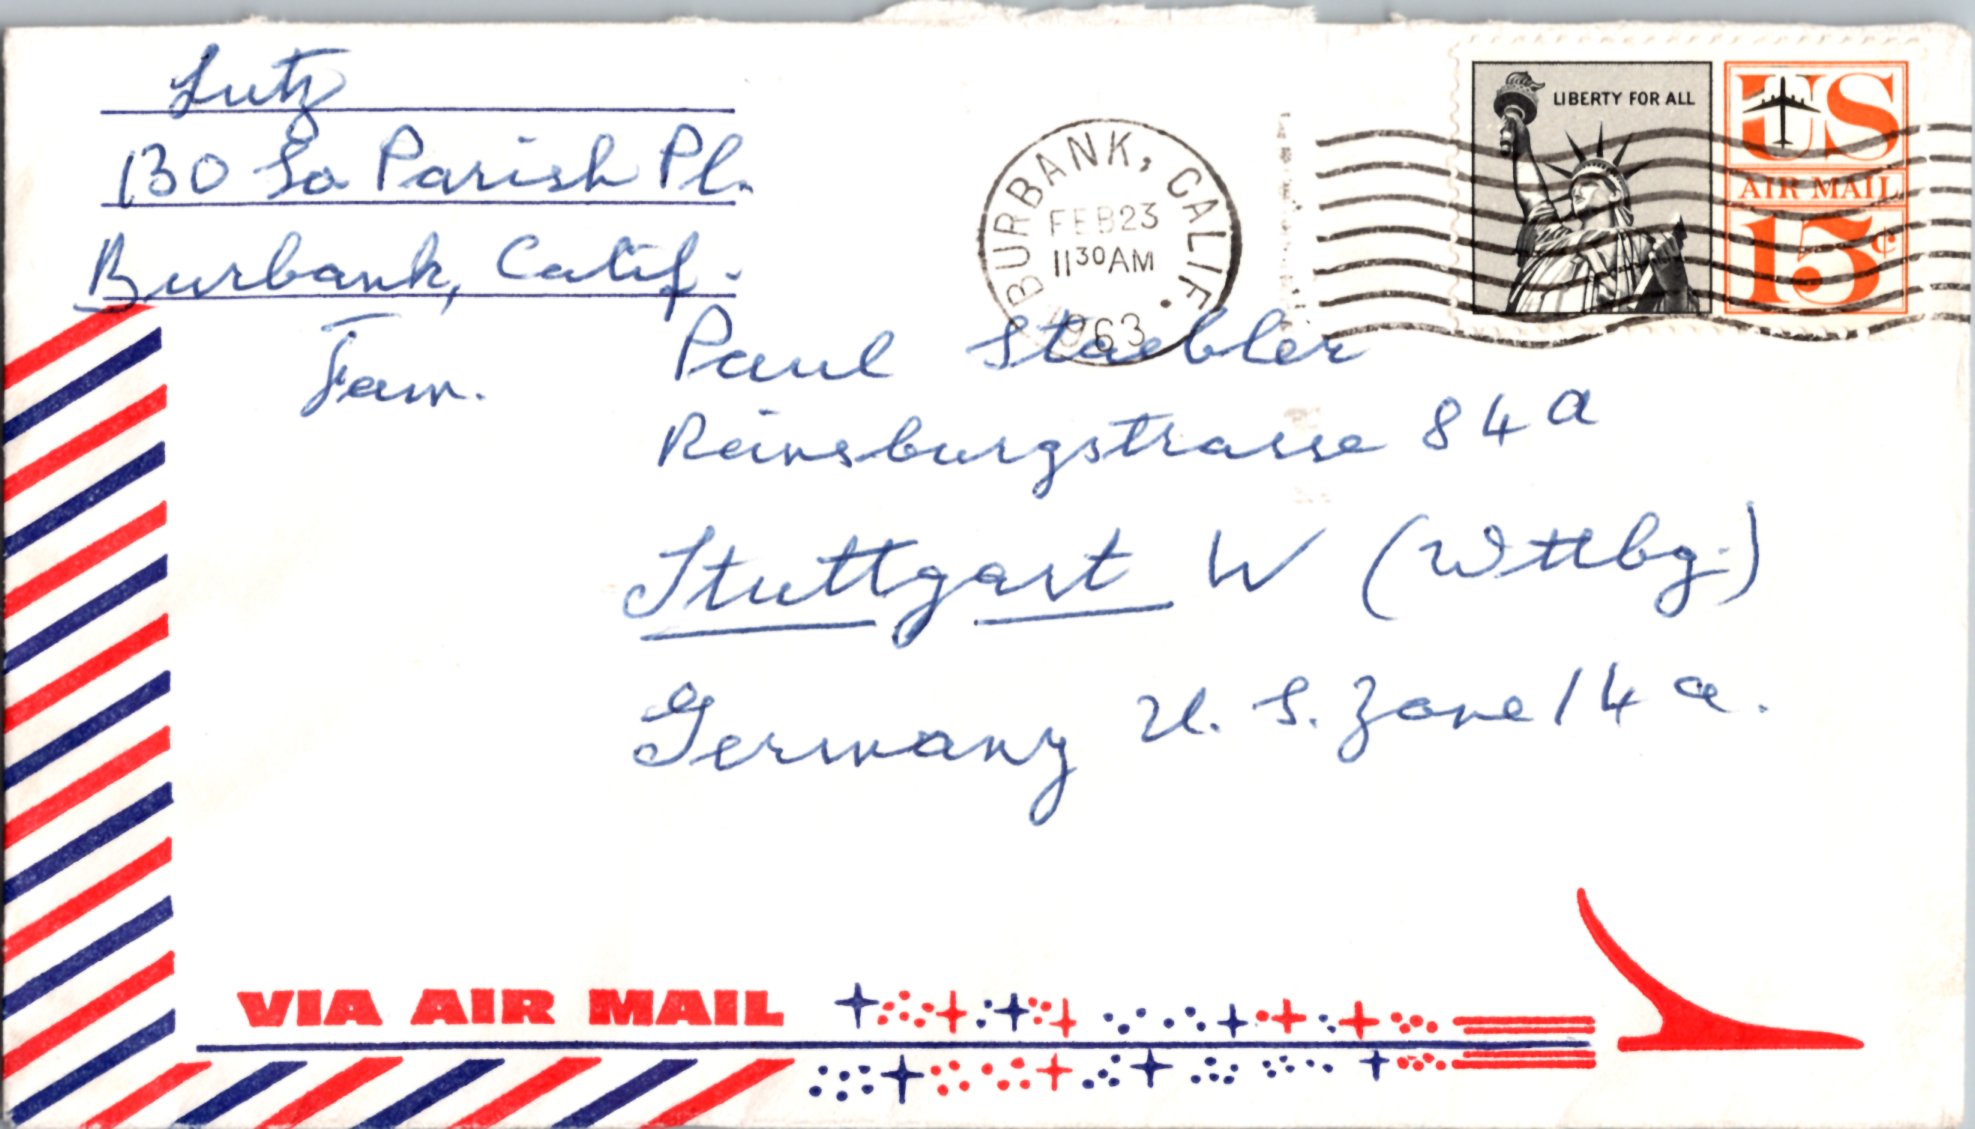 Lutz
130 So Parish Pl.
Burbank, Calif.
BURBANK, CALIF.
FEB 23
11 30 AM
1963
LIBERTY FOR ALL
US
AIR MAIL
15c
Fam. Paul Staebler
Reinsburgstrasse 84 a
Stuttgart W (Wttbg.)
Germany U. S. Zone 14 a.
VIA AIR MAIL